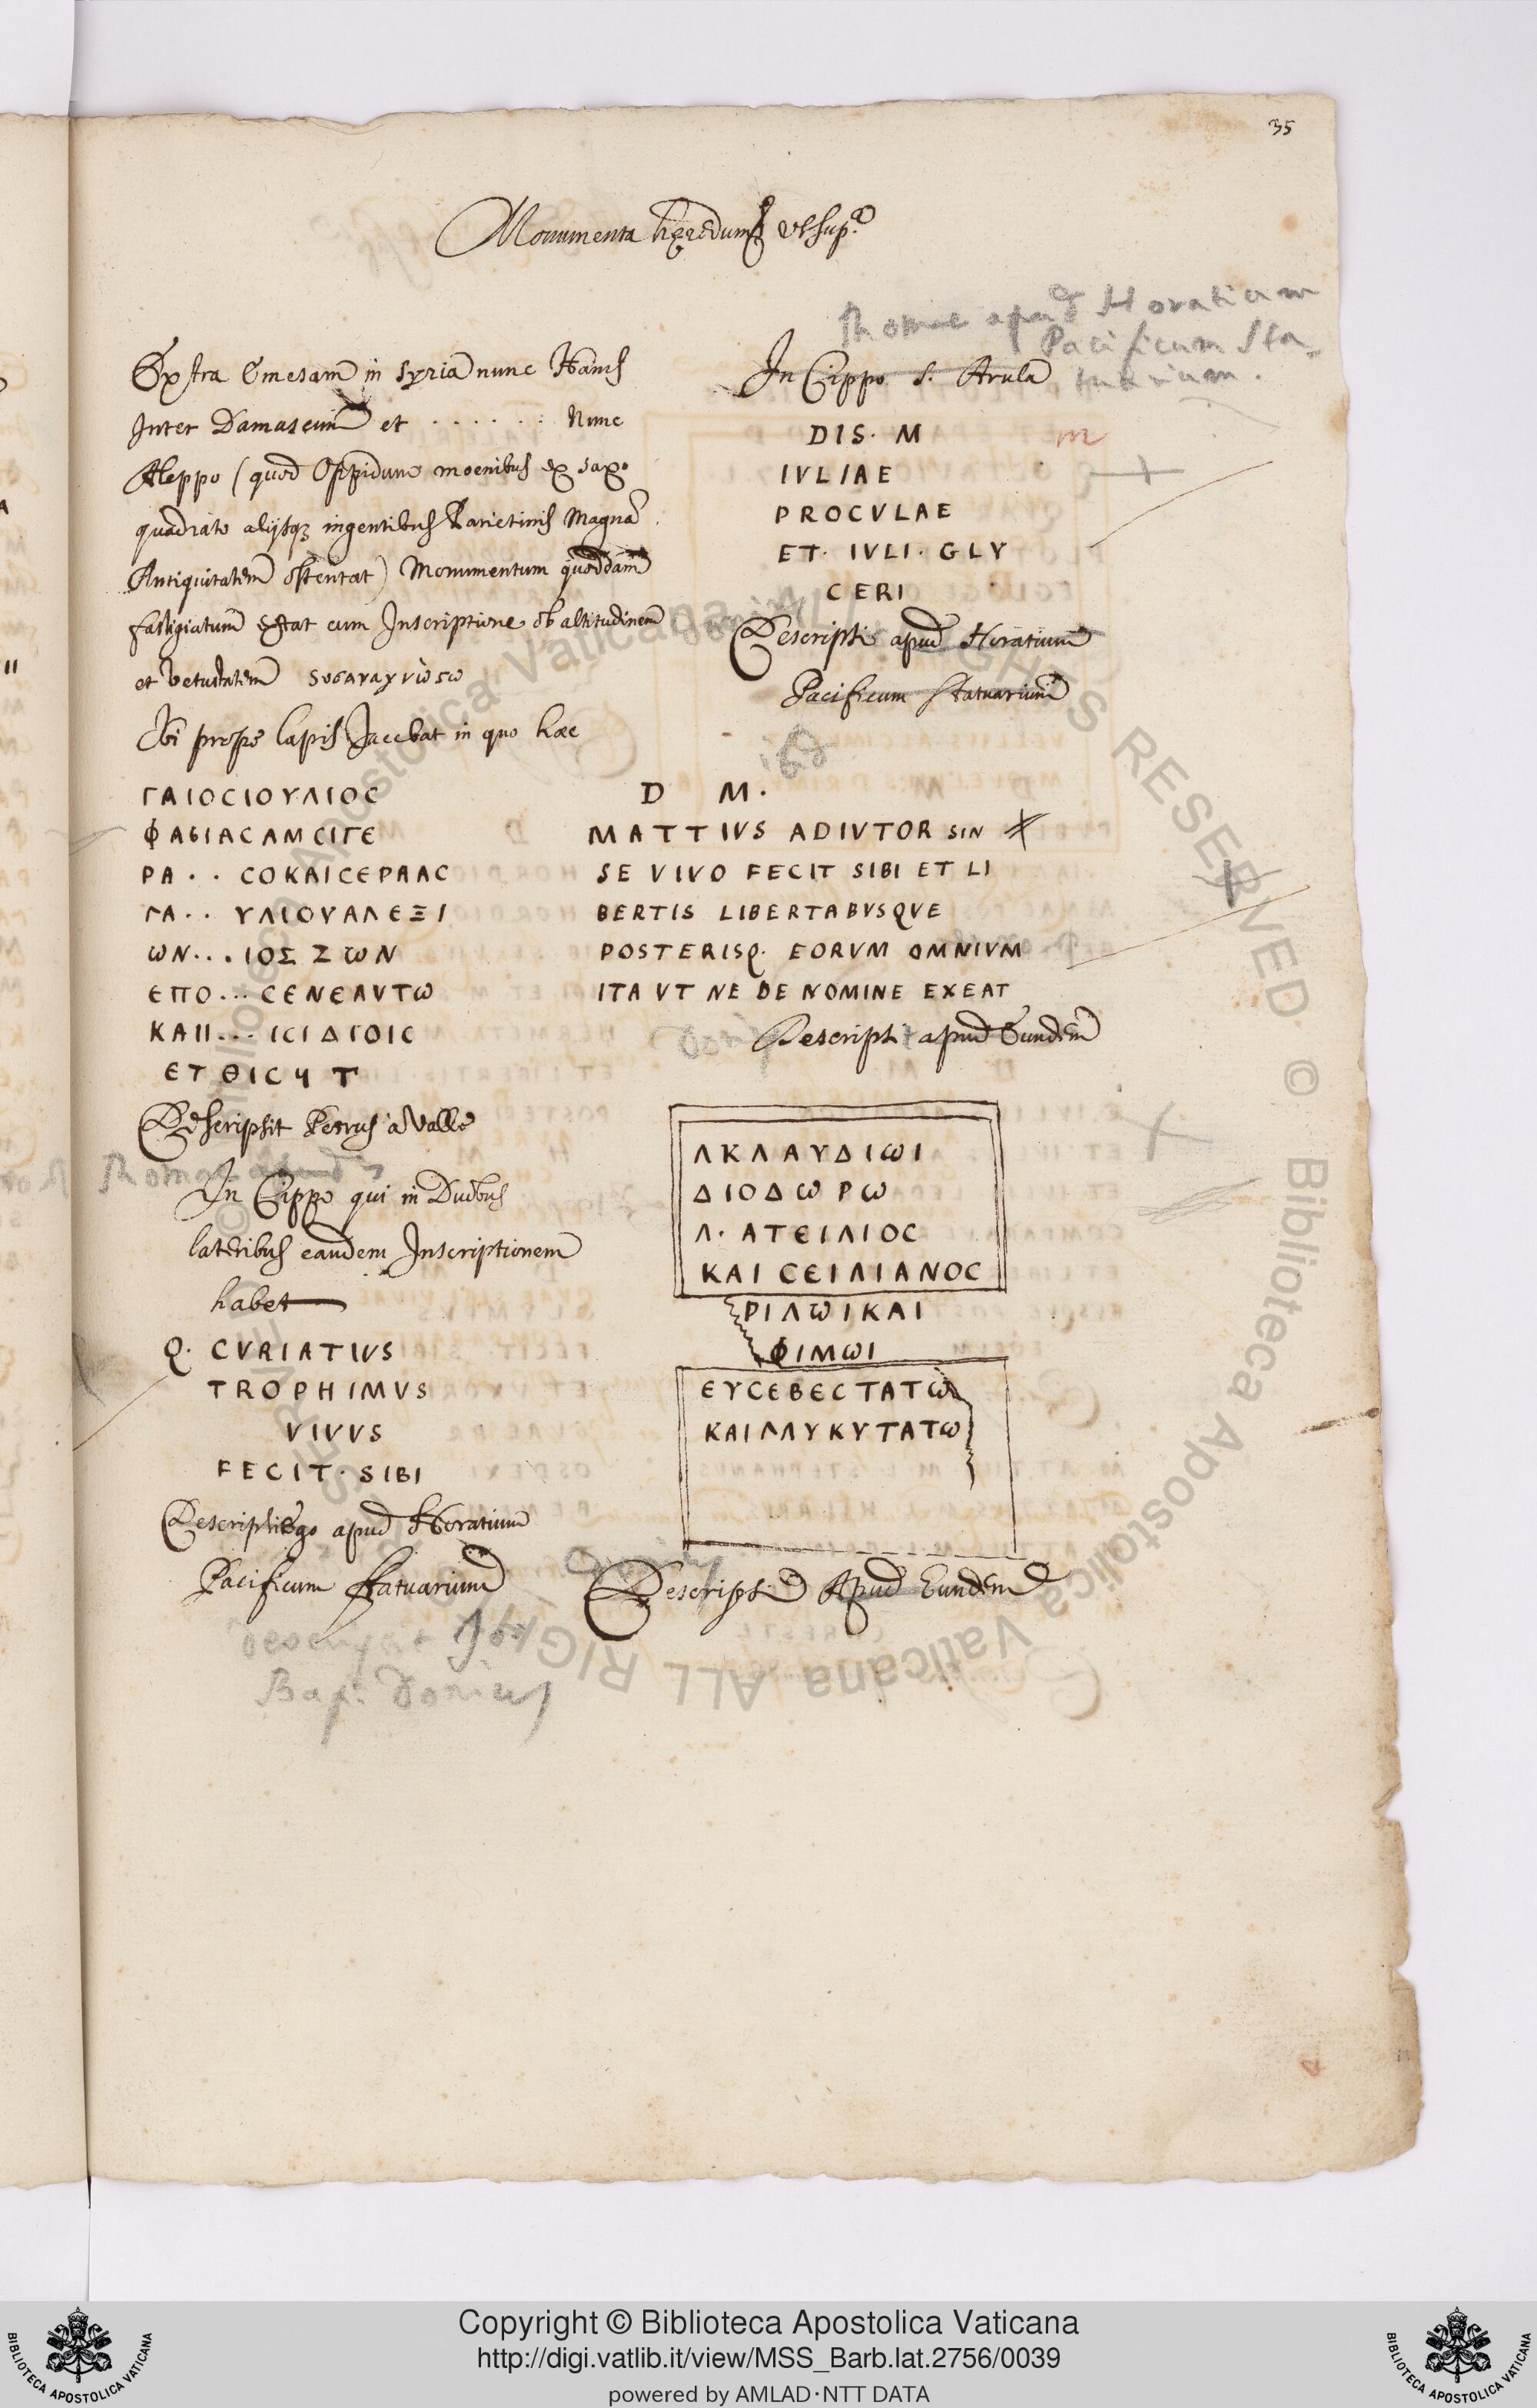 35
Monumenta hęredum ut sup.ª
Extra Emesam in Syria nunc Hams
Inter Damascum et . . . . . . : Nunc
Aleppo (quod Oppidum moenibus ex saxo
quadrato alijsq; ingentibus Parietinis Magna
Antiquitatem ostentat) Monumentum quoddam
fastigiatum extat cum Inscriptione ob altitudinem
et vetustatem
Ibi prope lapis Jacebat in quo haec
ΓΑΙΟCΙΟΥΛΙΟC
ΦΑΒΙΑCΑΜCΙΓΕ
ΡΑ . . CΟΚΑΙCΕΡΑΑC
ΓΑ . . ΥΛΙΟΥΑΛΕΞΙ
ωΝ . . . ΙΟΣ ΖωΝ
ΕΠΟ . . . CΕΝΕΑΥΤω
ΚΑΙΙ . . . ΙCΙΔΙΟΙC
ΕΤΘΙC Ч Τ
Descripsit Petrus à Valle
Romae apud
In Cippo qui in Duobus
lateribus eandem Inscriptionem
habet
Q. CVRIATIVS
TROPHIMVS
VIVVS
FECIT · SIBI
Descripsi Ego apud Horatium
Pacificum Statuarium
Descripsit Jo:
Bap. Donius
Romae apud Horatium
Pacificum Sta-
tuarium.
In Cippo s. Arula
DIS · M
m
IVLIAE
PROCVLAE
ET · IVLI · GLY
CERI
Donius
Descripsi apud Horatium
Pacificum Statuarium
ibid
D M ·
MATTIVS ADIVTOR SIN
SE VIVO FECIT SIBI ET LI
BERTIS LIBERTABVSQVE
POSTERISQ. EORVM OMNIVM
ITA VT NE DE NOMINE EXEAT
Descripsi apud Eundem
ΛΚΛΑΥΔΙωΙ
ΔΙΟΔωΡω
Λ · ΑΤΕΙΛΙΟC
ΚΑΙ CΕΙΛΙΑΝΟC
ΡΙΛωΙΚΑΙ
ΦΙΜωΙ
ΕΥCΕΒΕCΤΑΤω
ΚΑΙΛΛΥΚΥΤΑΤω
Donius
Descripsi Apud Eundem
© Biblioteca Apostolica Vaticana ALL RIGHTS RESERVED
Copyright © Biblioteca Apostolica Vaticana
http://digi.vatlib.it/view/MSS_Barb.lat.2756/0039
powered by AMLAD·NTT DATA
BIBLIOTECA APOSTOLICA VATICANA
BIBLIOTECA APOSTOLICA VATICANA